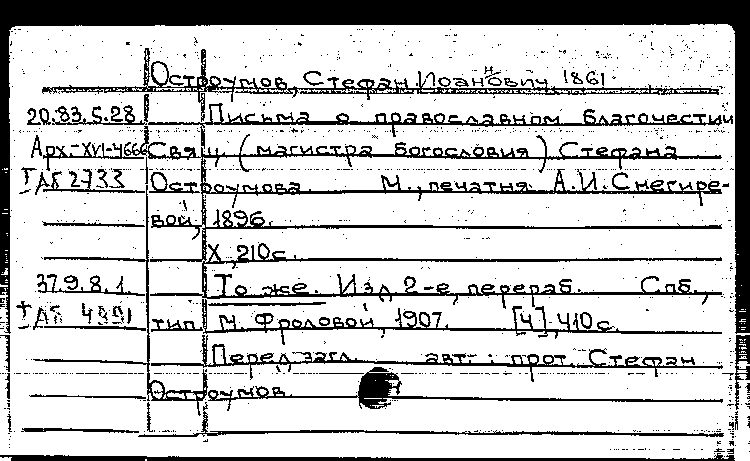 Остроумов, Стефан Иоаннович, 1861-
20.83.5.28. Письма о православном благочестии
Арх.-XVI-4666 Свящ. (магистра богословия) Стефана
ТАБ 2733 Остроумова. М., печатня А.И. Снегире-
вой, 1896.
X, 210с.
37.9.8.1. То же. Изд. 2-е, перераб. Спб.,
тип. М. Фроловой, 1907. [4], 410с.
Перед загл. авт.: прот. Стефан
Остроумов.